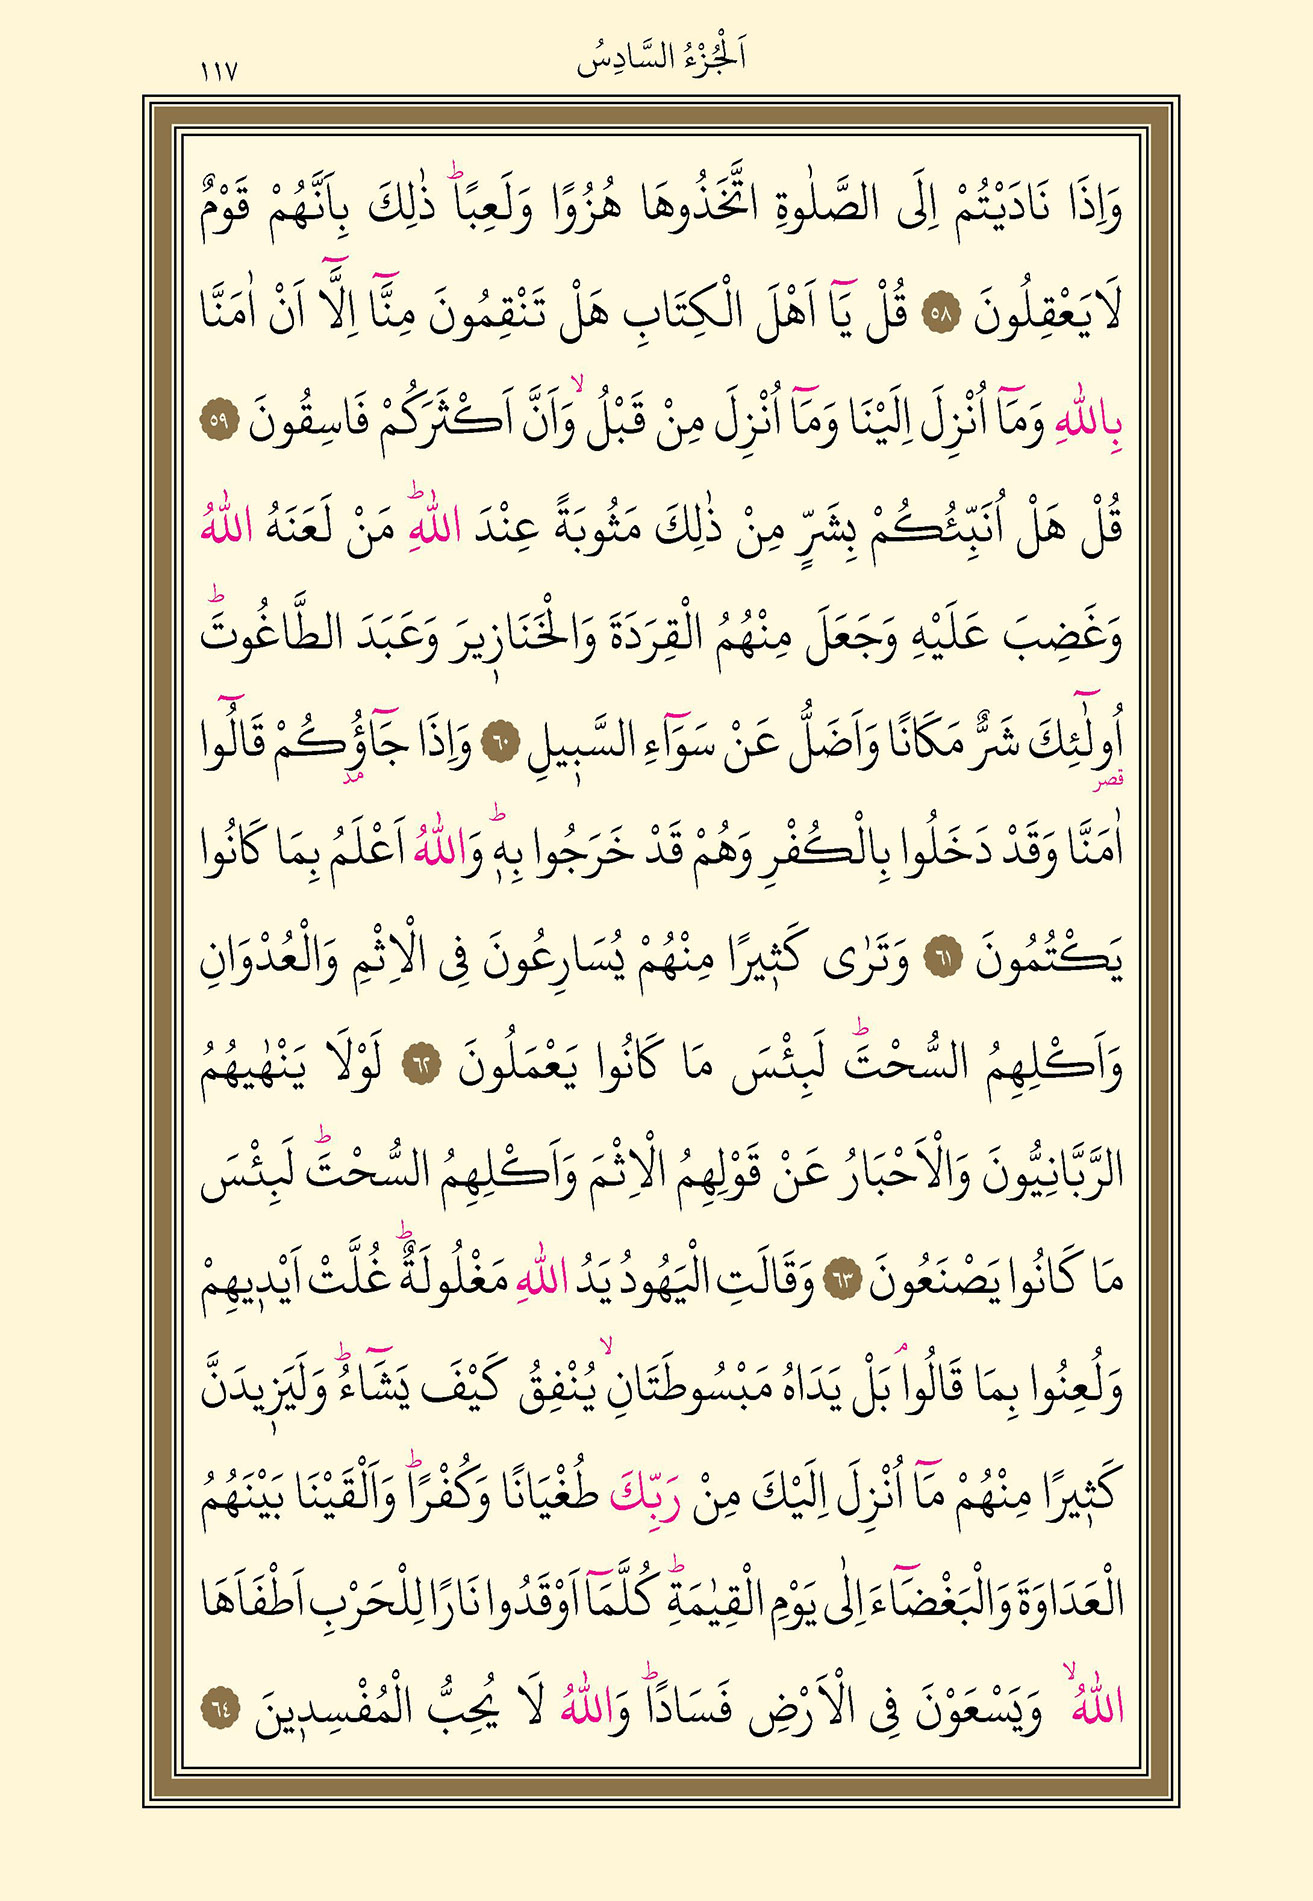 اَلْجُزْءُ السَّادِسُ
١١٧
وَاِذَا نَادَيْتُمْ اِلَى الصَّلٰوةِ اتَّخَذُوهَا هُزُوًا وَلَعِبًاۜ ذٰلِكَ بِاَنَّهُمْ قَوْمٌ
لَا يَعْقِلُونَ ﴿٥٨﴾ قُلْ يَٓا اَهْلَ الْكِتَابِ هَلْ تَنْقِمُونَ مِنَّٓا اِلَّٓا اَنْ اٰمَنَّا
بِاللّٰهِ وَمَٓا اُنْزِلَ اِلَيْنَا وَمَٓا اُنْزِلَ مِنْ قَبْلُۙ وَاَنَّ اَكْثَرَكُمْ فَاسِقُونَ ﴿٥٩﴾
قُلْ هَلْ اُنَبِّئُكُمْ بِشَرٍّ مِنْ ذٰلِكَ مَثُوبَةً عِنْدَ اللّٰهِۜ مَنْ لَعَنَهُ اللّٰهُ
وَغَضِبَ عَلَيْهِ وَجَعَلَ مِنْهُمُ الْقِرَدَةَ وَالْخَنَاز۪يرَ وَعَبَدَ الطَّاغُوتَۜ
اُو۬لٰٓئِكَ شَرٌّ مَكَانًا وَاَضَلُّ عَنْ سَوَٓاءِ السَّب۪يلِ ﴿٦٠﴾ وَاِذَا جَٓاؤُ۫كُمْ قَالُٓوا
قصر مد
اٰمَنَّا وَقَدْ دَخَلُوا بِالْكُفْرِ وَهُمْ قَدْ خَرَجُوا بِه۪ۜ وَاللّٰهُ اَعْلَمُ بِمَا كَانُوا
يَكْتُمُونَ ﴿٦١﴾ وَتَرٰى كَث۪يرًا مِنْهُمْ يُسَارِعُونَ فِى الْاِثْمِ وَالْعُدْوَانِ
وَاَكْلِهِمُ السُّحْتَۜ لَبِئْسَ مَا كَانُوا يَعْمَلُونَ ﴿٦٢﴾ لَوْلَا يَنْهٰيهُمُ
الرَّبَّانِيُّونَ وَالْاَحْبَارُ عَنْ قَوْلِهِمُ الْاِثْمَ وَاَكْلِهِمُ السُّحْتَۜ لَبِئْسَ
مَا كَانُوا يَصْنَعُونَ ﴿٦٣﴾ وَقَالَتِ الْيَهُودُ يَدُ اللّٰهِ مَغْلُولَةٌۜ غُلَّتْ اَيْد۪يهِمْ
وَلُعِنُوا بِمَا قَالُواۢ بَلْ يَدَاهُ مَبْسُوطَتَانِۙ يُنْفِقُ كَيْفَ يَشَٓاءُۜ وَلَيَز۪يدَنَّ
كَث۪يرًا مِنْهُمْ مَٓا اُنْزِلَ اِلَيْكَ مِنْ رَبِّكَ طُغْيَانًا وَكُفْرًاۜ وَاَلْقَيْنَا بَيْنَهُمُ
الْعَدَاوَةَ وَالْبَغْضَٓاءَ اِلٰى يَوْمِ الْقِيٰمَةِۜ كُلَّمَٓا اَوْقَدُوا نَارًا لِلْحَرْبِ اَطْفَاَهَا
اللّٰهُۙ وَيَسْعَوْنَ فِى الْاَرْضِ فَسَادًاۜ وَاللّٰهُ لَا يُحِبُّ الْمُفْسِد۪ينَ ﴿٦٤﴾